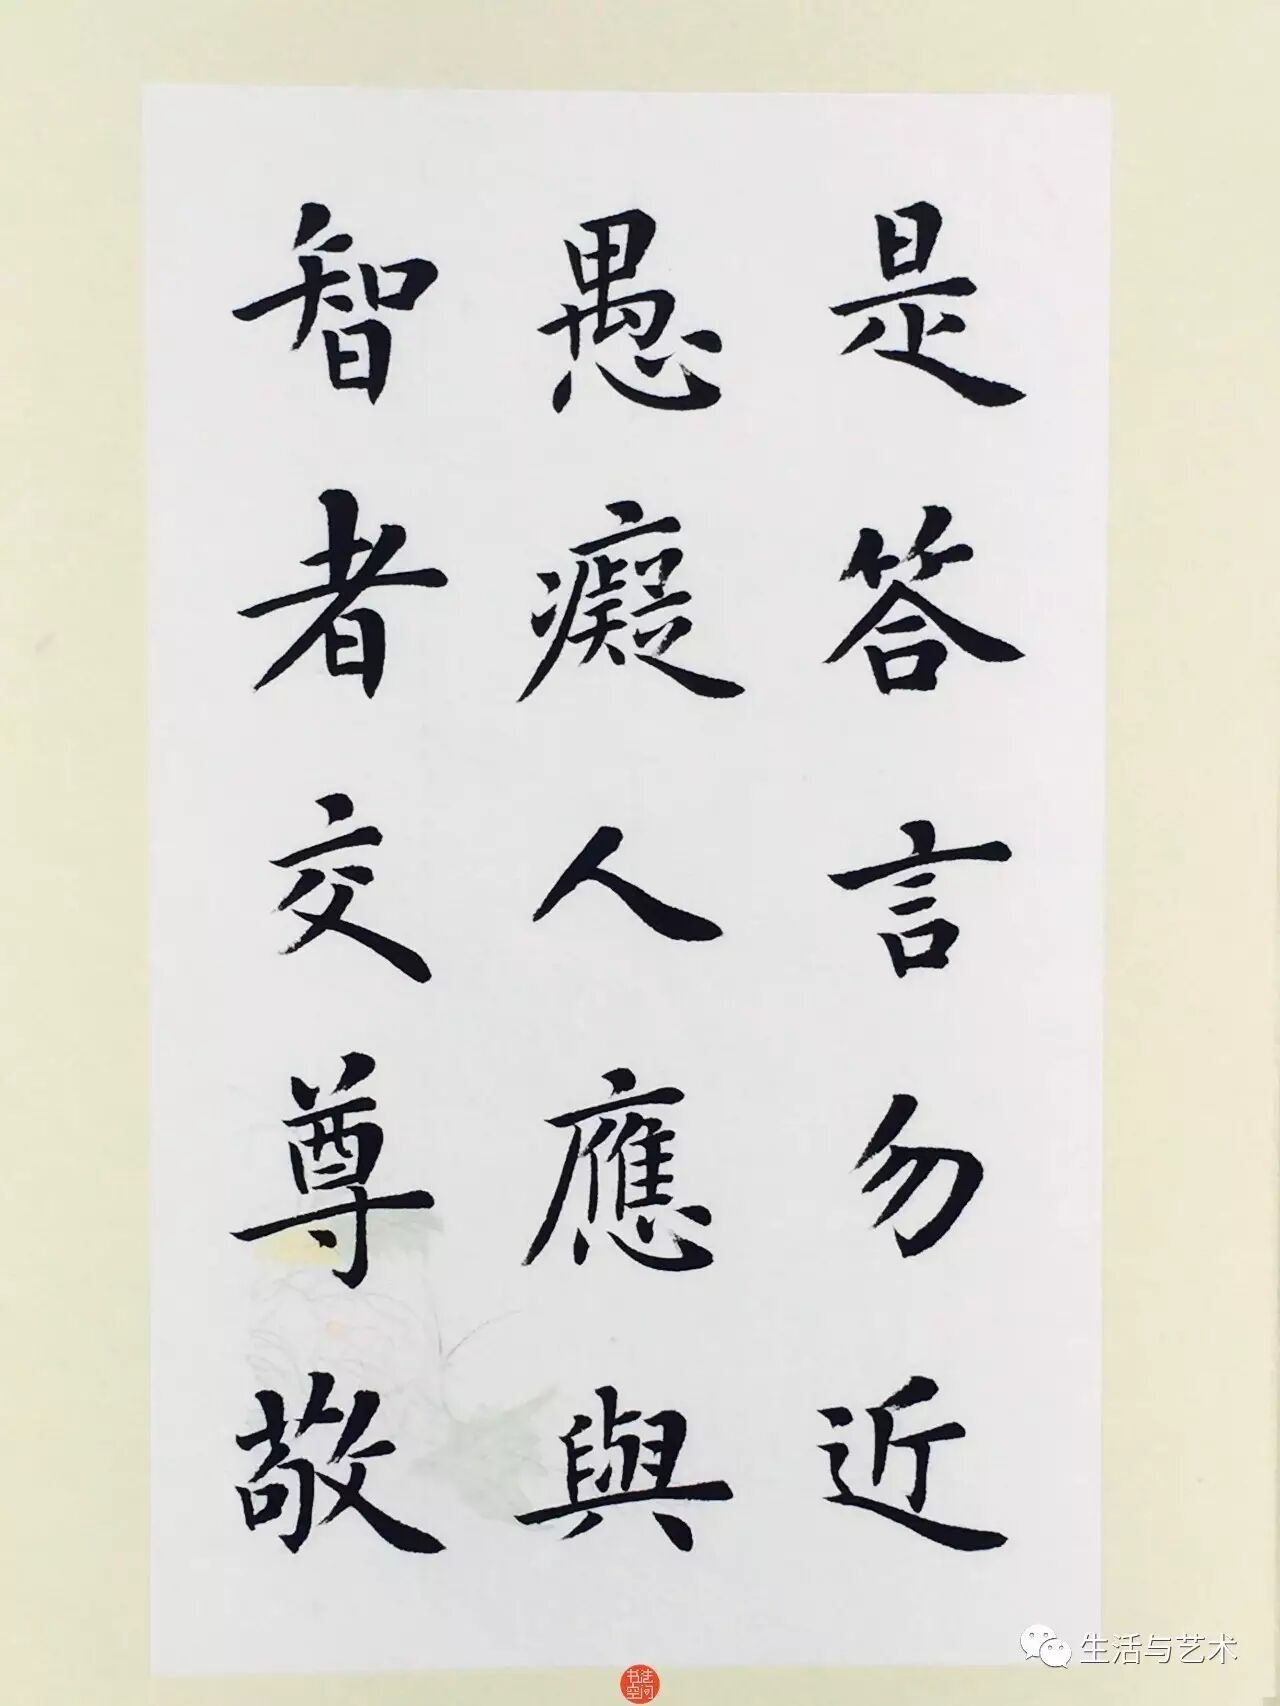 是答言勿近
愚癡人應與
智者交尊敬
生活与艺术
书法空间